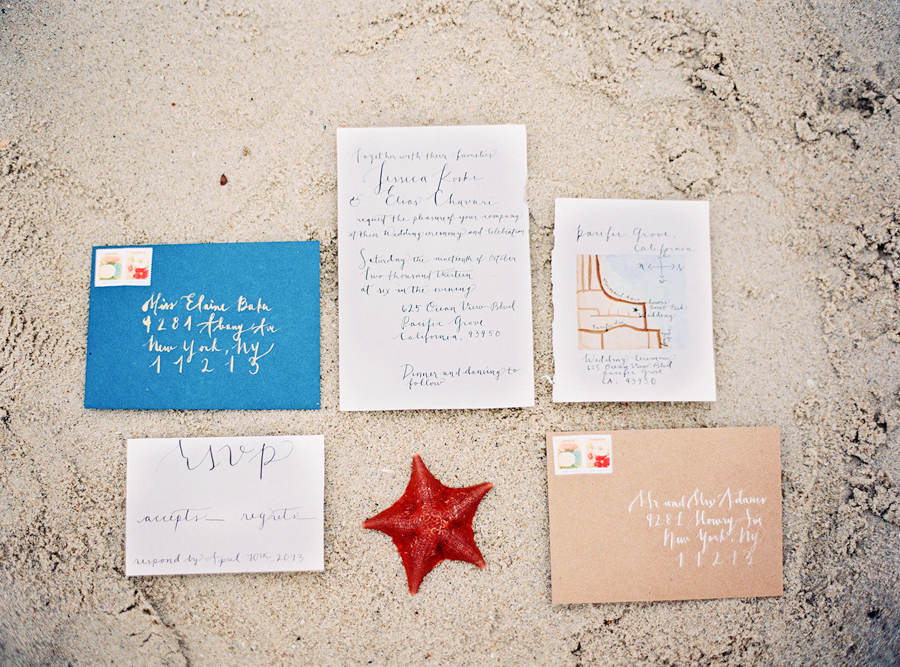 Together with their families
Jessica Koshi
& Elias Chavari
request the pleasure of your company
at their wedding ceremony and celebration
Saturday the nineteenth of October
two thousand thirteen
at six in the evening
625 Ocean View Blvd
Pacific Grove
California, 93950
Dinner and dancing to
follow
Pacific Grove,
California
N S
Wedding
Wedding Ceremony
625 Ocean View Blvd
Pacific Grove
CA, 93950
Miss Elaine Baker
9281 Albany Ave
New York, NY
11213
rsvp
accepts regrets
respond by April 10th, 2013
Mr and Mrs Adams
9281 Henry Ave
New York, NY
11213